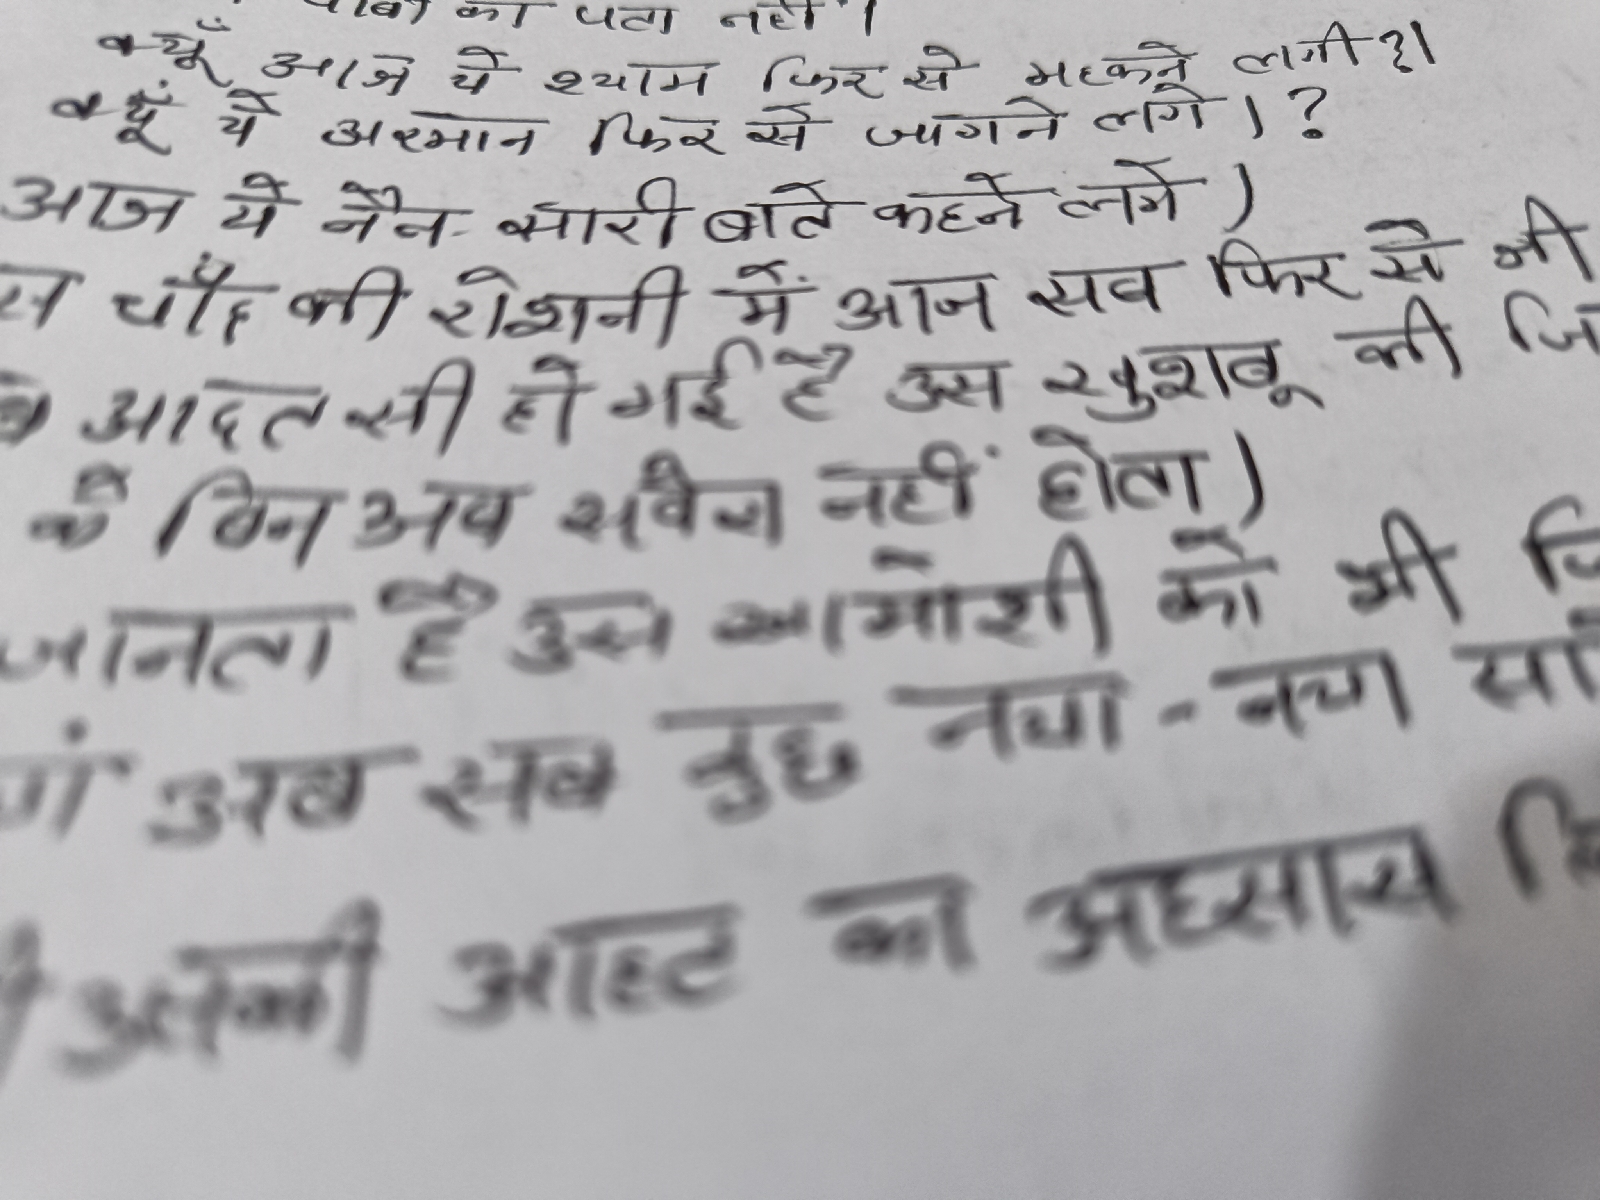 का पता नहीं।
क्यूँ आज ये श्याम फिर से महकने लगी?।
क्यूँ ये अरमान फिर से जागने लगे।?
आज ये नैन सारी बाते कहने लगे)
चाँद की रोशनी में आज सब फिर से
आदत सी हो गई है उस खुशबू की
के बिन अब सवेरा नहीं होता)
जानता है उस खामोशी को भी
अब सब कुछ नया - नया
उसकी आहट का अहसास